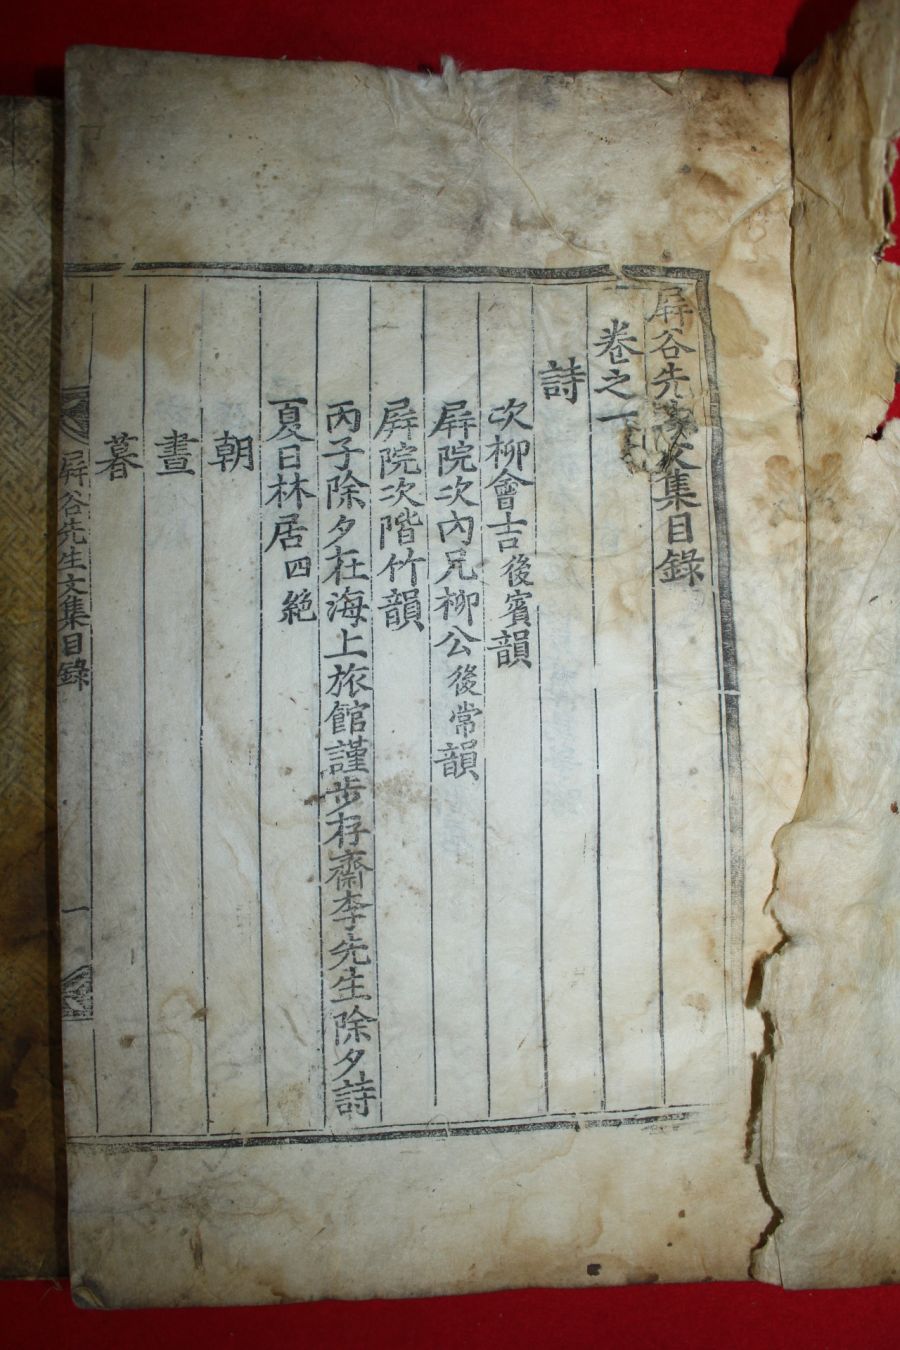 屛谷先生文集目錄
卷之一
詩
次柳會吉後賓韻
屛院次內兄柳公後常韻
屛院次階竹韻
丙子除夕在海上旅館謹步存齋李先生除夕詩
夏日林居四絶
朝
晝
暮
屛谷先生文集目錄 一